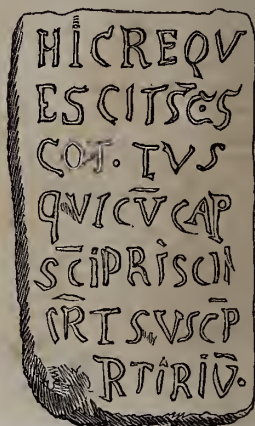 HICREQV
ESCITSC̄S
COT·TVS
qVICV̄CAP
SC̄IPRISCIN
SVSCP̄
RTIRIV̄·